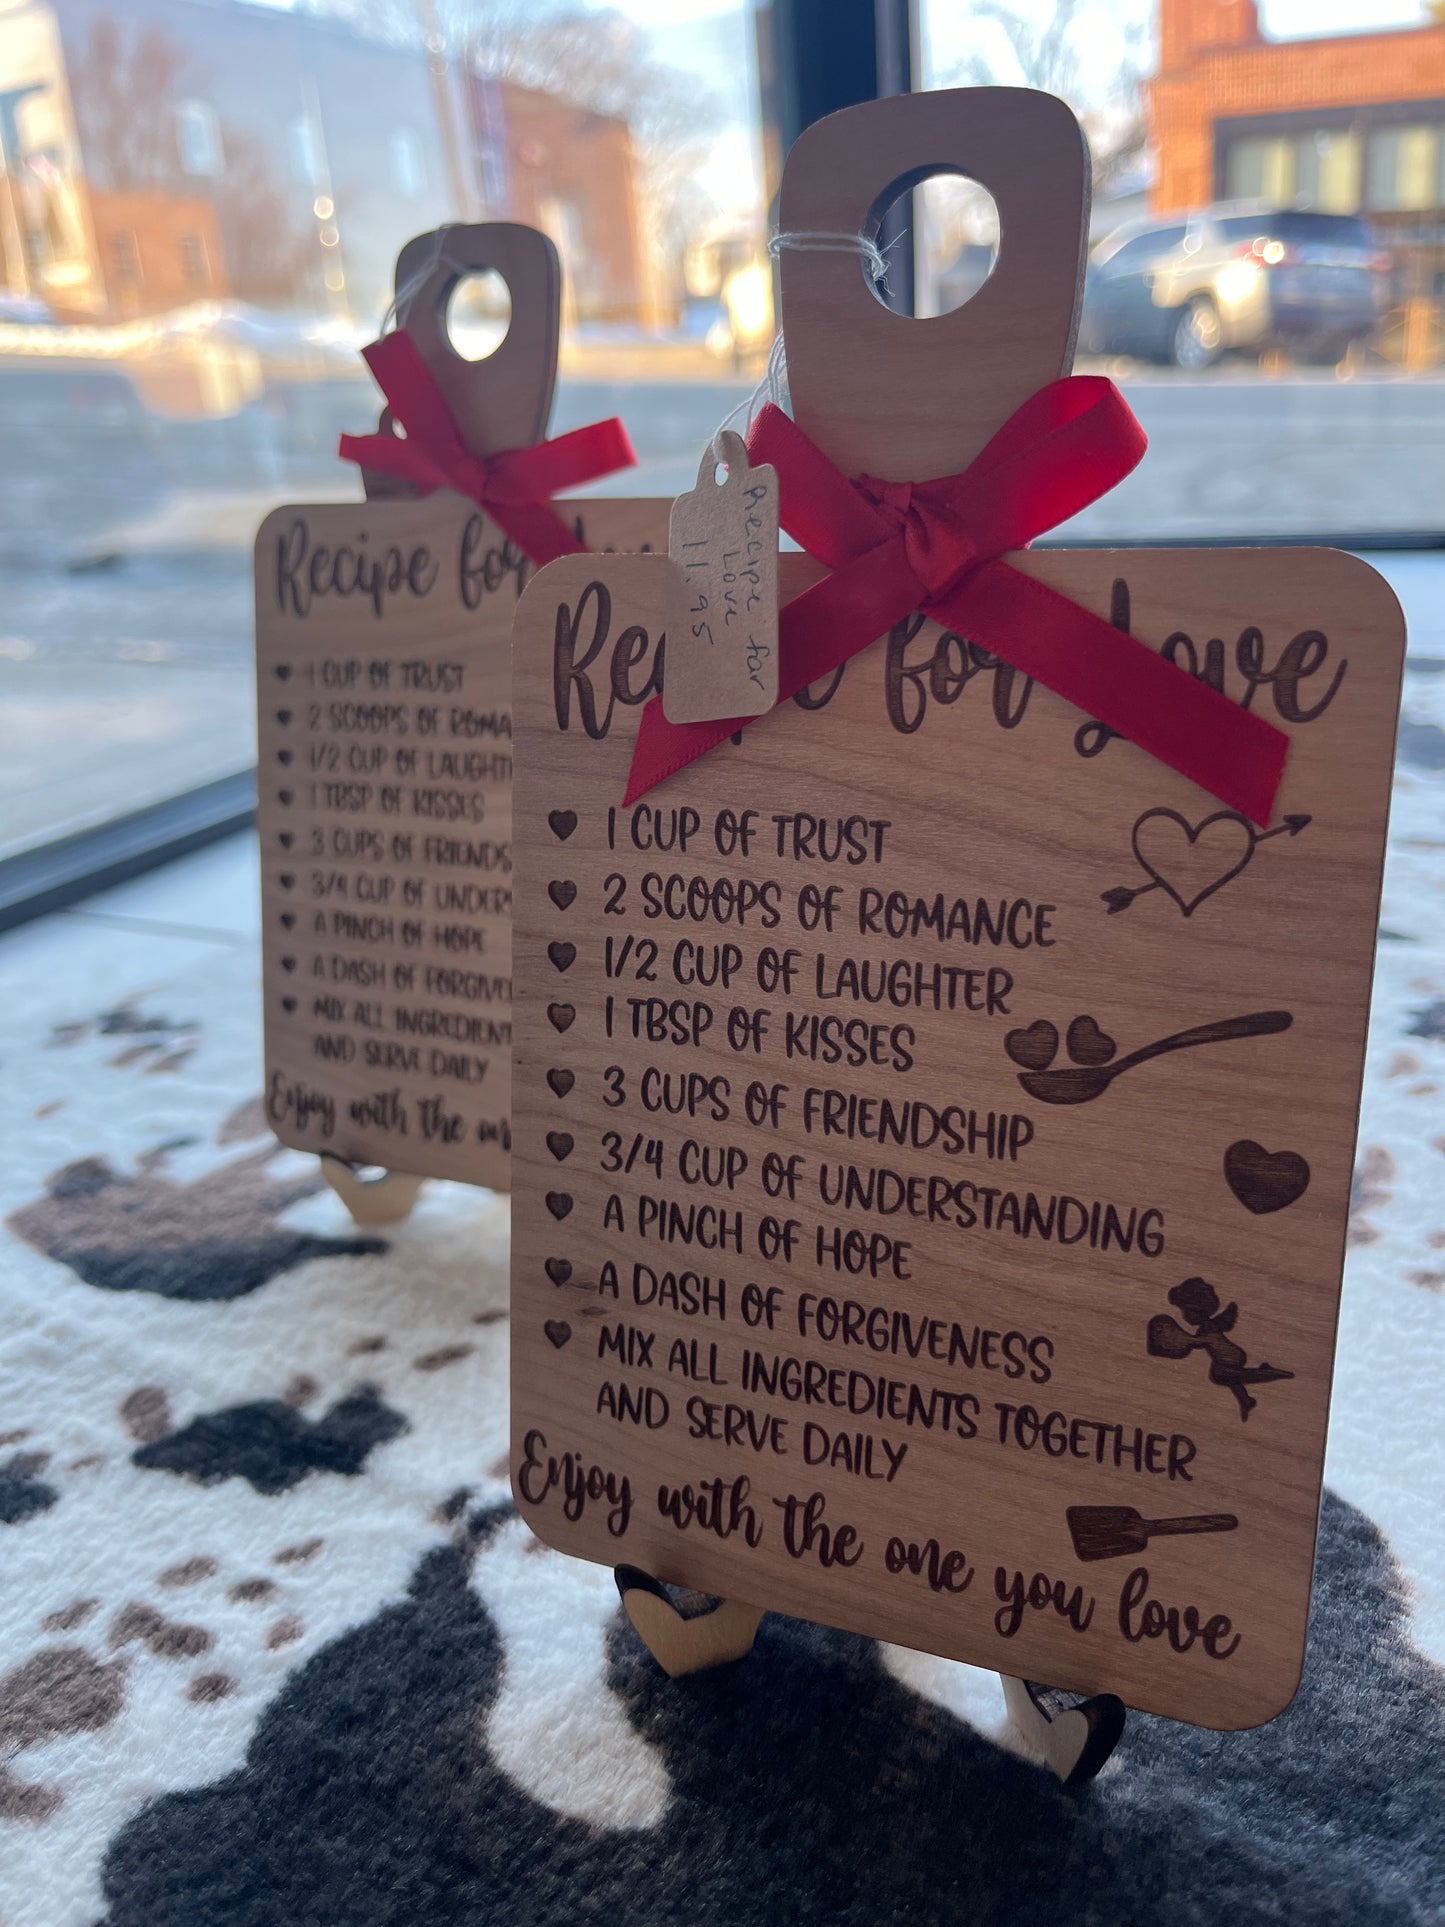 Recipe for
1 CUP OF TRUST
2 SCOOPS OF ROMA
1/2 CUP OF LAUGHT
1 TBSP OF KISSES
3 CUPS OF FRIENDS
3/4 CUP OF UNDER
A PINCH OF HOPE
A DASH OF FORGIVE
MIX ALL INGREDIENT
AND SERVE DAILY
Enjoy with the on
Recipe for
Love
11.95
Recipe for Love
1 CUP OF TRUST
2 SCOOPS OF ROMANCE
1/2 CUP OF LAUGHTER
1 TBSP OF KISSES
3 CUPS OF FRIENDSHIP
3/4 CUP OF UNDERSTANDING
A PINCH OF HOPE
A DASH OF FORGIVENESS
MIX ALL INGREDIENTS TOGETHER
AND SERVE DAILY
Enjoy with the one you love